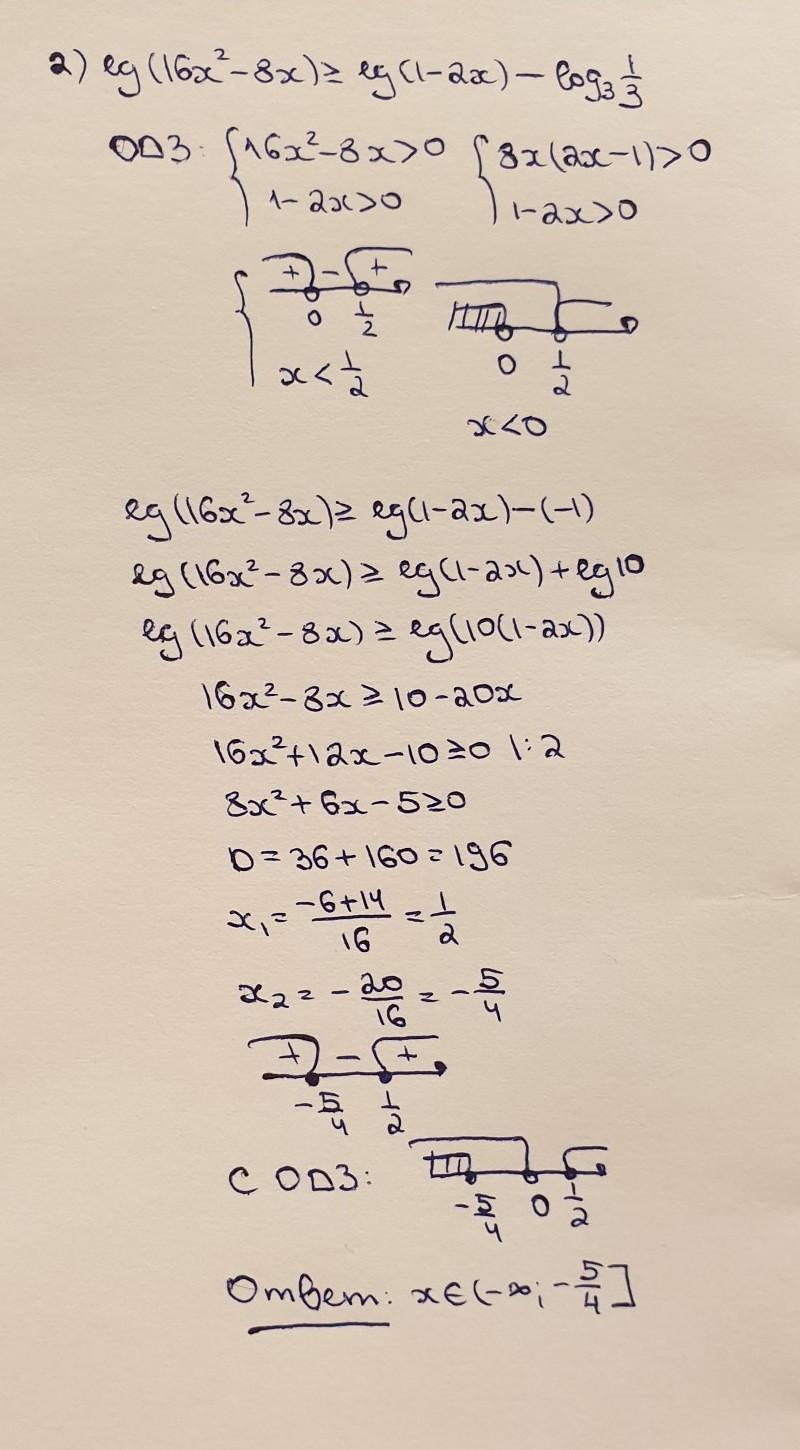 2) lg(16x²-8x)≥ lg(1-2x) - log₃ 1/3
ОДЗ: {16x²-8x>0 {8x(2x-1)>0
1-2x>0 1-2x>0
{ + - +
0 1/2
x < 1/2 0 1/2
x<0
lg(16x²-8x)≥ lg(1-2x)-(-1)
lg(16x²-8x) ≥ lg(1-2x)+lg10
lg(16x²-8x) ≥ lg(10(1-2x))
16x²-8x ≥ 10-20x
16x²+12x-10≥0 |:2
8x²+6x-5≥0
D=36+160=196
x₁= (-6+14)/16 = 1/2
x₂= -20/16 = -5/4
+ - +
-5/4 1/2
С ОДЗ:
-5/4 0 1/2
Ответ: x∈(-∞; -5/4]